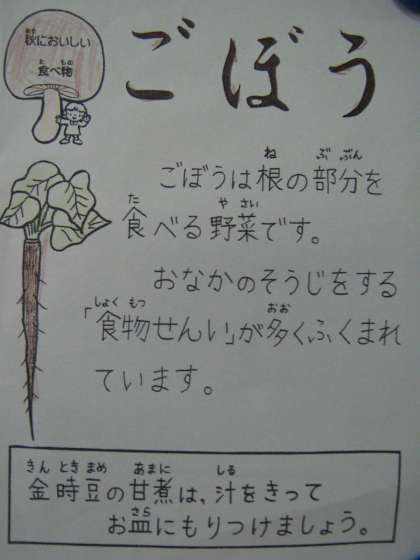 秋においしい
食べ物
ごぼう
ごぼうは根の部分を
食べる野菜です。
おなかのそうじをする
「食物せんい」が多くふくまれ
ています。
金時豆の甘煮は、汁をきって
お皿にもりつけましょう。